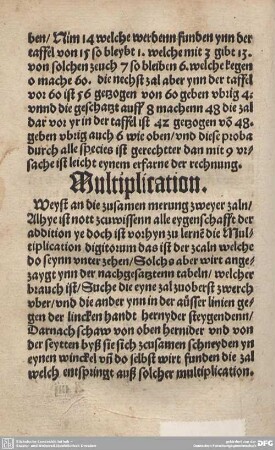 ben/ Nim 14 welche werdenn funden ynn der
taffel von 15 so bleybt 1. welche mit 3 gibt 13.
von solchen zeuch 7 so bleiben 6. welche kegen
0 mache 60. die nechst zal aber ynn der taffel
vor 60 ist 56 getzogen von 60 geben vbrig 4.
vnnd die geschatzt auff 8 machenn 48 die zal
dar vor yr in der taffel ist 42 getzogen võ 48.
geben vbrig auch 6 wie oben/ vnd diese proba
durch alle species ist gerechtter dan mit 9 vr-
sache ist leicht eynem erfarne der rechnung.
Multiplication.
Weyst an die zusamen merung zweyer zaln/
Alhye ist nott zcuwissenn alle eygenschafft der
addition ye doch ist vorhyn zu lernẽ die Mul-
tiplication digitorum das ist der zcaln welche
do seynn vnter zehen/ Solchs aber wirt ange-
zaygt ynn der nachgesatztenn tabeln/ welcher
brauch ist/ Suche die eyne zal zuoberst zwerch
vber/ vnd die ander ynn der aüsser linien ge-
gen der lincken handt hernyder steygendenn/
Darnach schaw von oben hernider vnd von
der seytten byß sie sich zusamen schneyden yn
eynen winckel vñ do selbst wirt funden die zal
welch entspringt auß solcher multiplication.